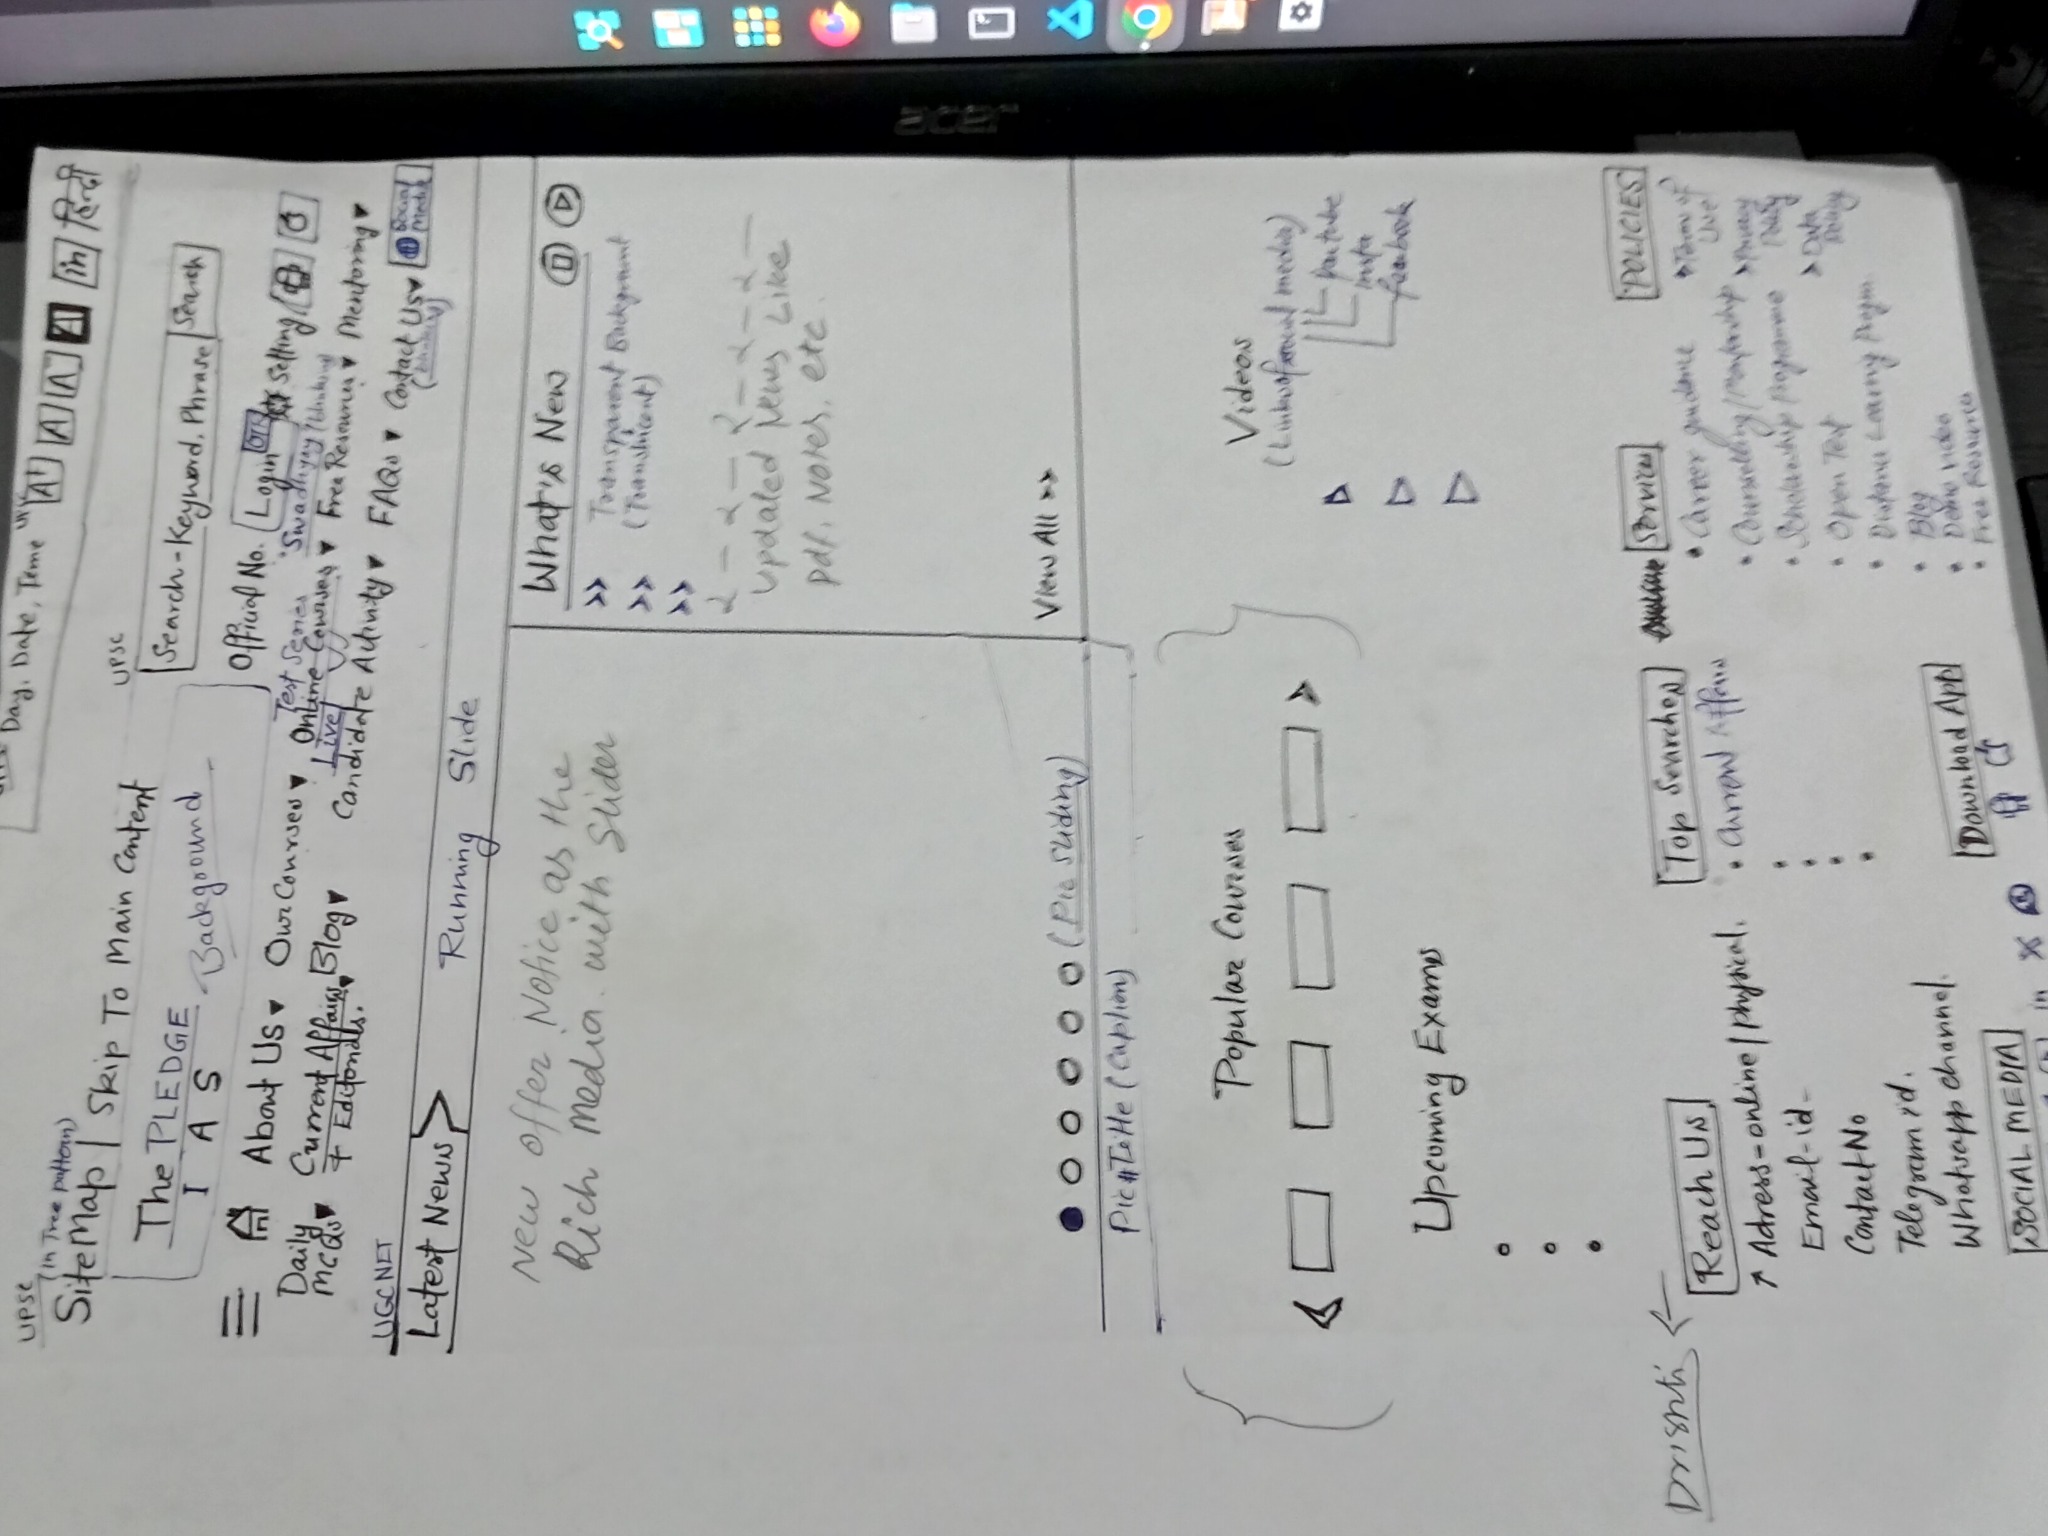 Day, Date, Time A+ A A- A in हिन्दी
UPSC (in Tree pattern)
SiteMap | Skip To Main Content
UPSC
The PLEDGE
I A S
Background
Search - Keyword, Phrase Search
Official No. Login OTR Setting
Test Series Swadhyay
☰ About Us ▾ Our Courses ▾ Online Courses ▾ Free Resources ▾ Mentoring ▾
Live
Daily MCQs ▾ Current Affairs + Editorials. ▾ Blog ▾ Candidate Activity ▾ FAQs ▾ Contact Us ▾ Social Media
UGC NET
Latest News > Running Slide
New Offer Notice as the
Rich Media. with Slider
What's New
>> Transparent Background
>> (Translucent)
>>
Updated News Like
pdf, Notes, etc.
View All >>
(Pic Sliding)
Pic#Title (Caption)
Popular Courses
Videos
youtube
insta
facebook
Upcoming Exams
Drishti
Reach Us
Adress-online/physical.
Email-id-
Contact No
Telegram id.
Whatsapp channel.
Top Searches
• Current Affairs
Services
• Career guidance
• Counselling/Mentorship
• Scholarship Programme
• Open Test
• Distance Learning Progm.
• Blog
• Demo video
• Free Resources
POLICIES
> Terms of Use
> Privacy Policy
> Data Policy
SOCIAL MEDIA
in X
Download App
acer